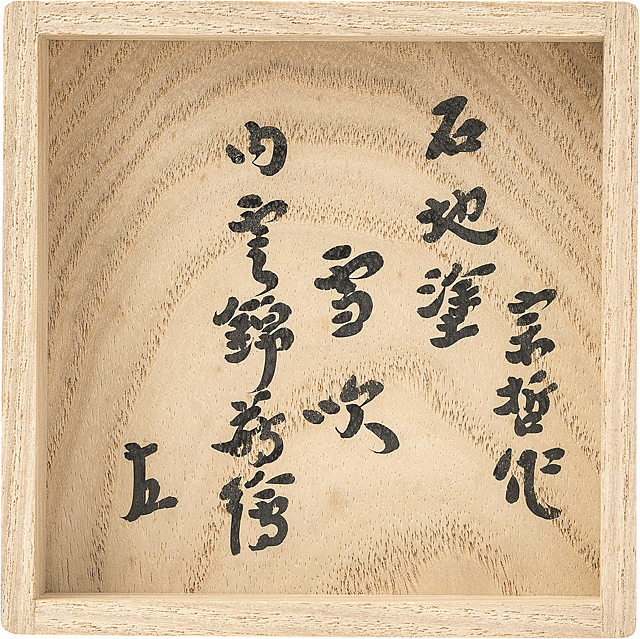 宗哲作
石地塗
雪吹
内雲錦蒔繪